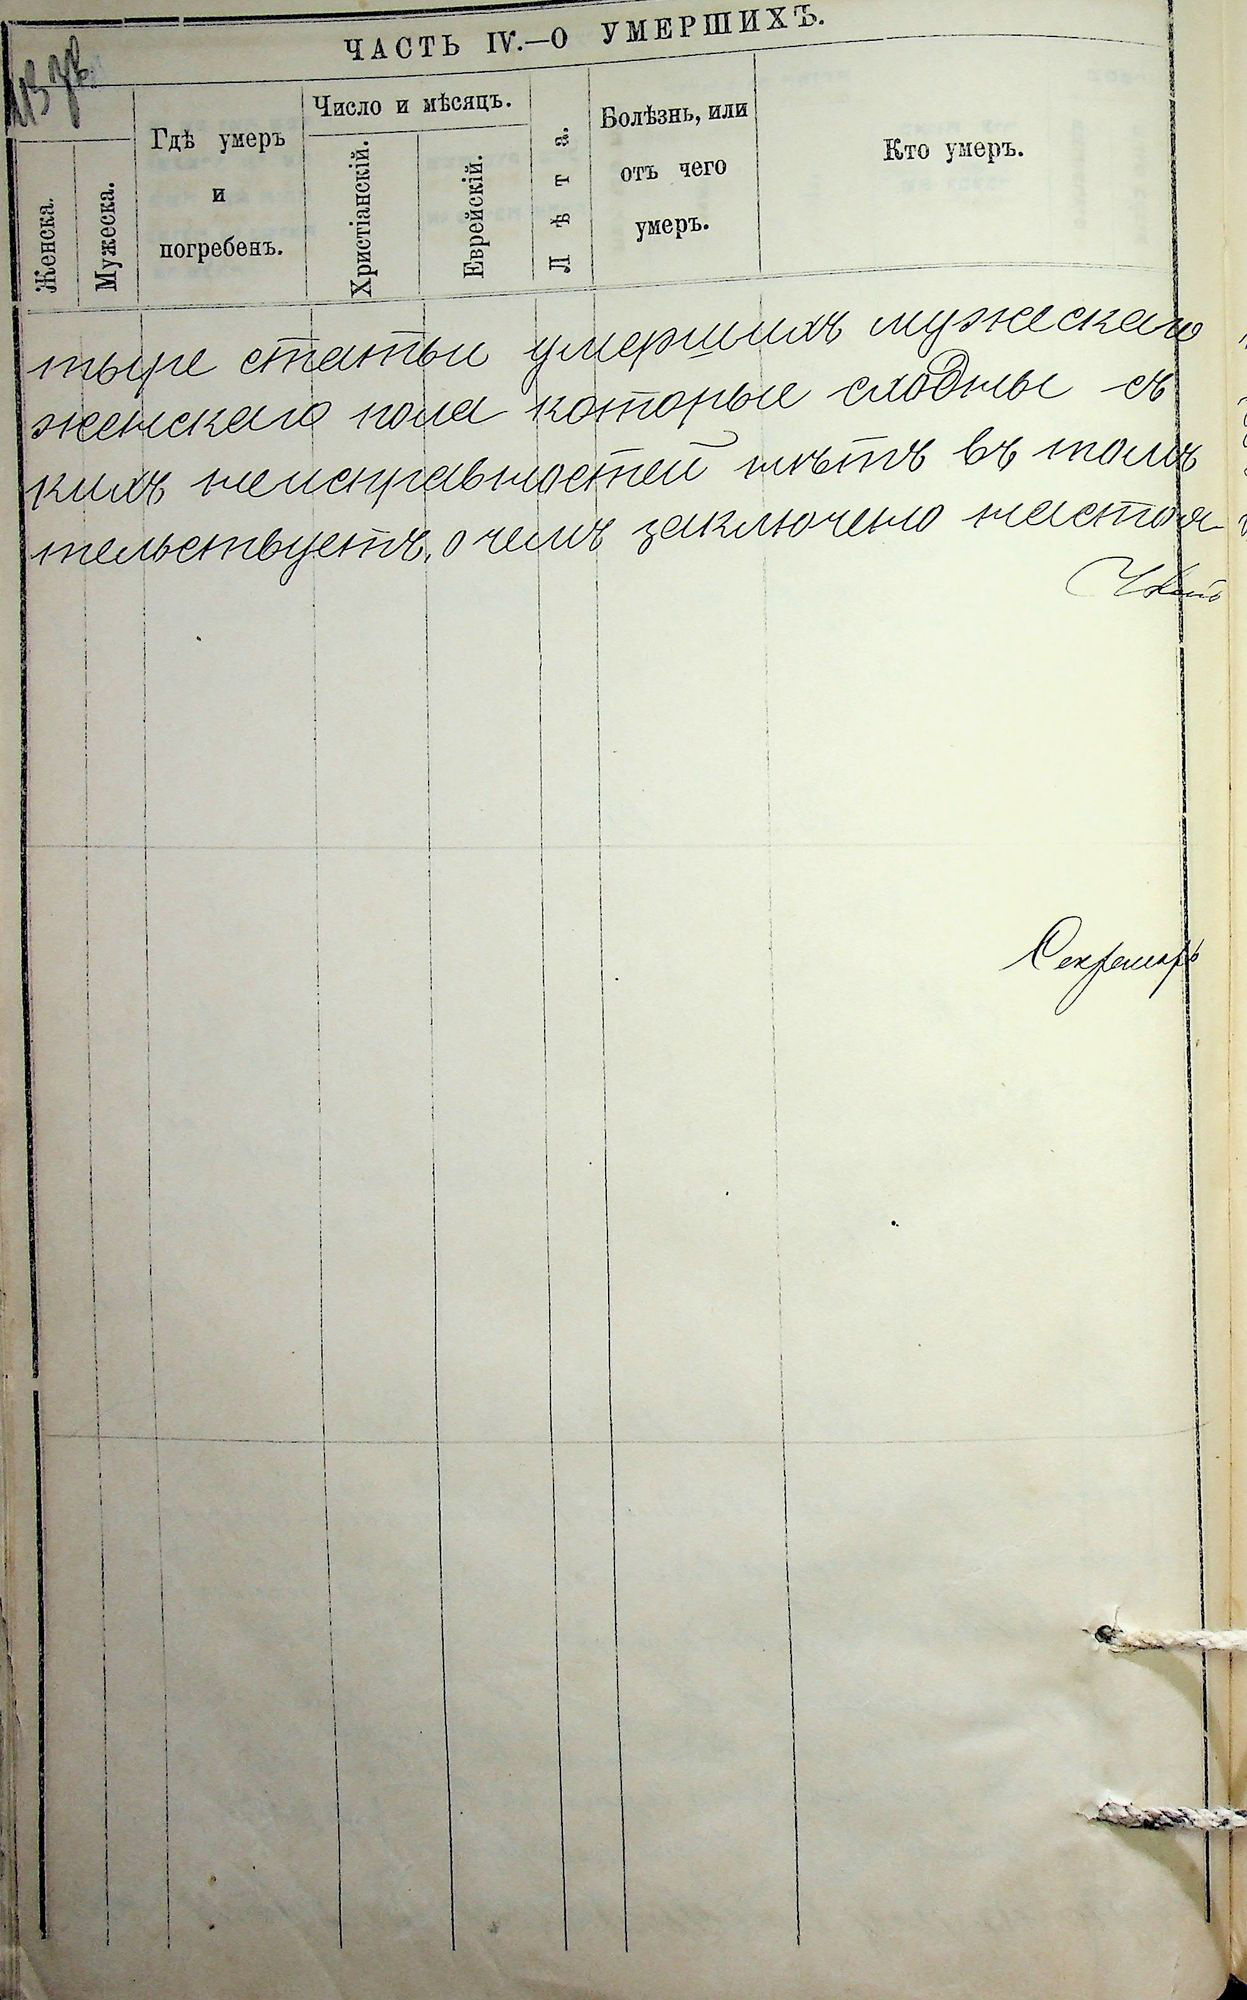 ЧАСТЬ IV.—О УМЕРШИХЪ.
Женска.
Мужеска.
Гдѣ умеръ
и
погребенъ.
Число и мѣсяцъ.
Христіанскій.
Еврейскій.
Лѣта.
Болѣзнь, или
отъ чего
умеръ.
Кто умеръ.
тыре статьи умершихъ мужескаго
женскаго пола которые сходны съ
кихъ неисправностей нѣтъ въ томъ
тельствуетъ, о чемъ заключено настоя-
Секретарь